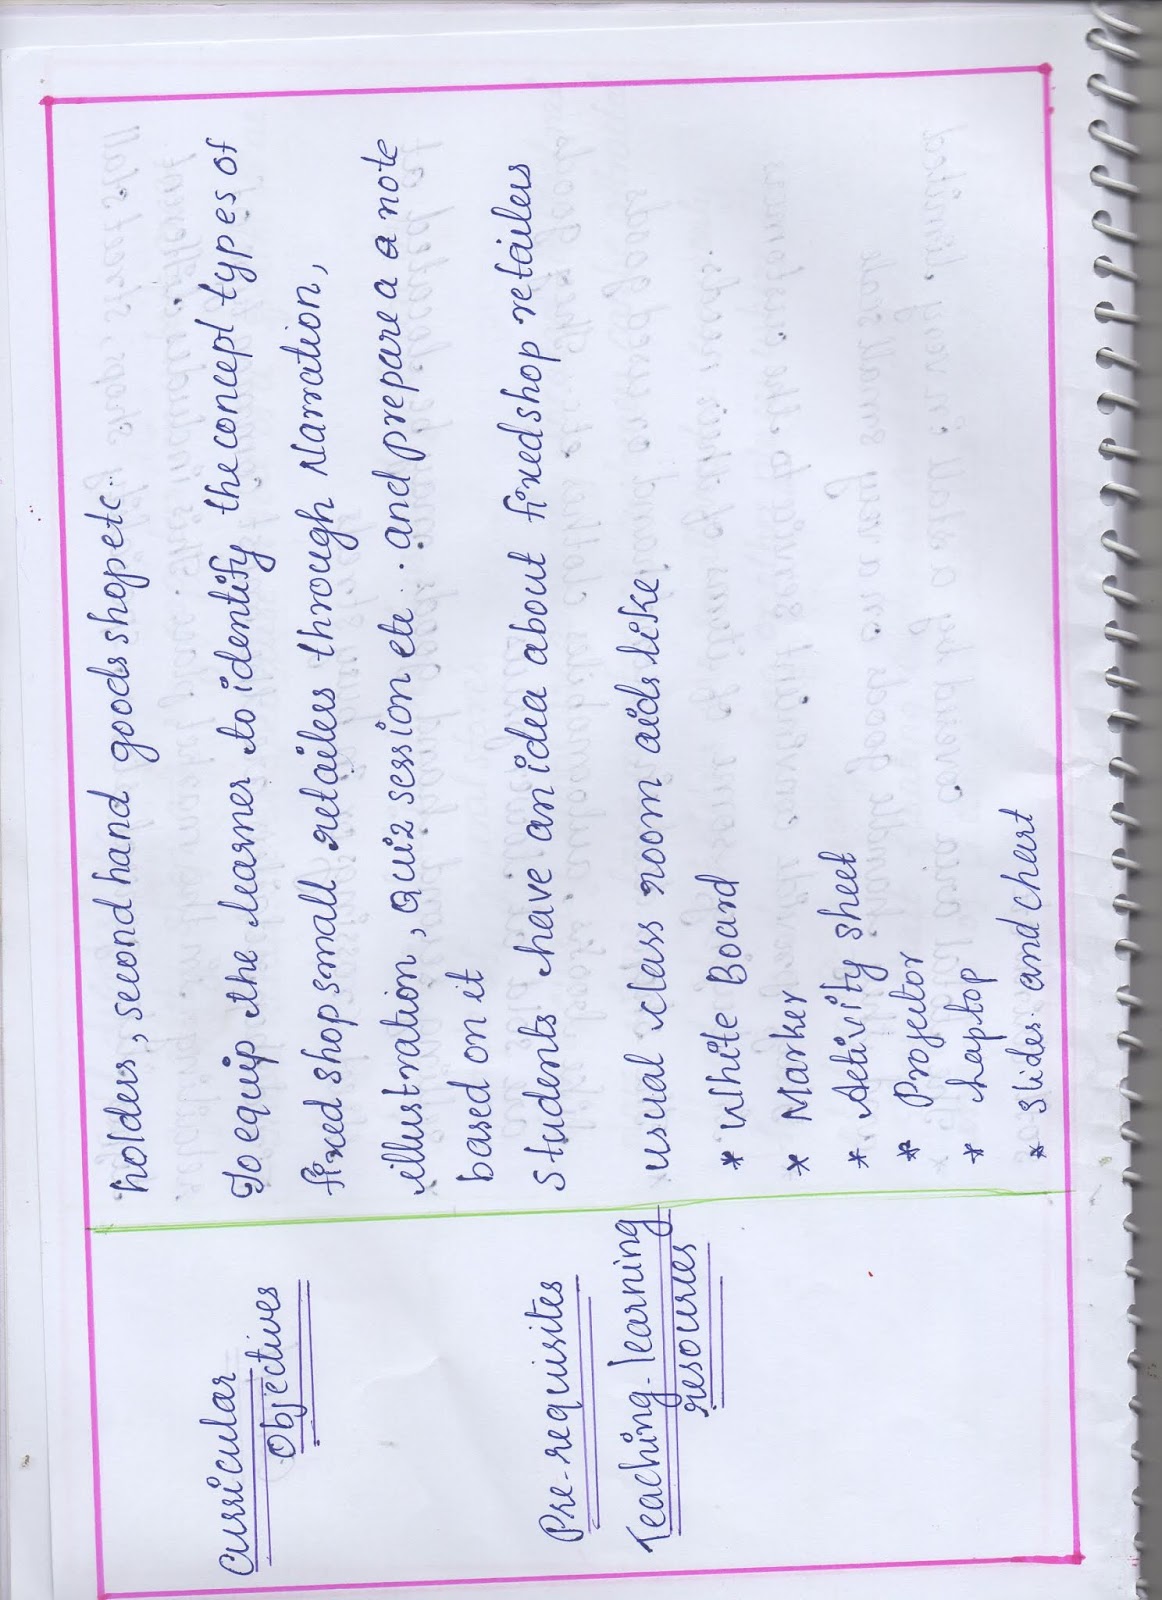 holders, second hand goods shop etc..
Curricular
Objectives
To equip the learner to identify the concept types of
fixed shop small retailers through Narration,
illustration, Quiz session etc.. and prepare a note
based on it
Pre-requisites
students have an idea about fixedshop retailers
Teaching-learning
resources
usual class room aids like
* White Board
* Marker
* Activity sheet
* Projector
* Laptop
* Slides and chart